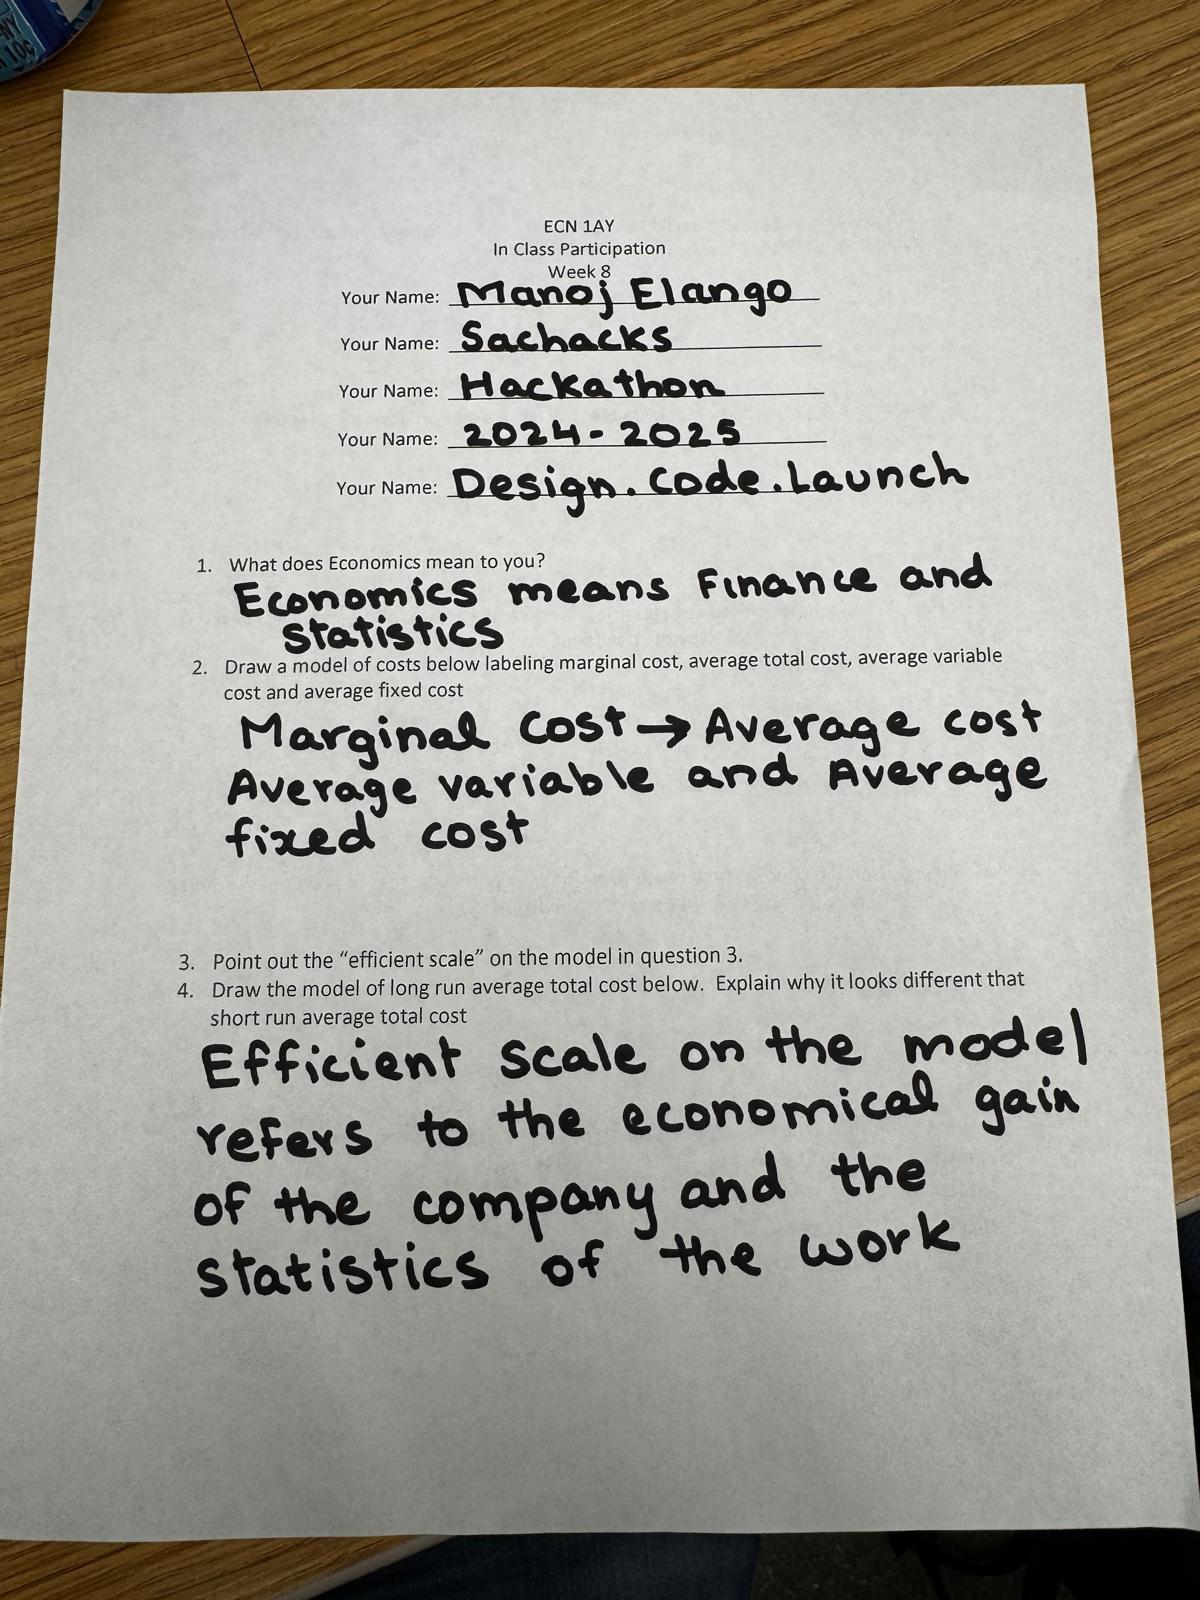 NY
10¢
ECN 1AY
In Class Participation
Week 8
Your Name: Manoj Elango
Your Name: Sachacks
Your Name: Hackathon
Your Name: 2024-2025
Your Name: Design.Code.Launch
1. What does Economics mean to you?
Economics means Finance and
statistics
2. Draw a model of costs below labeling marginal cost, average total cost, average variable
cost and average fixed cost
Marginal cost → Average cost
Average variable and Average
fixed cost
3. Point out the “efficient scale” on the model in question 3.
4. Draw the model of long run average total cost below. Explain why it looks different that
short run average total cost
Efficient scale on the model
refers to the economical gain
of the company and the
statistics of the work